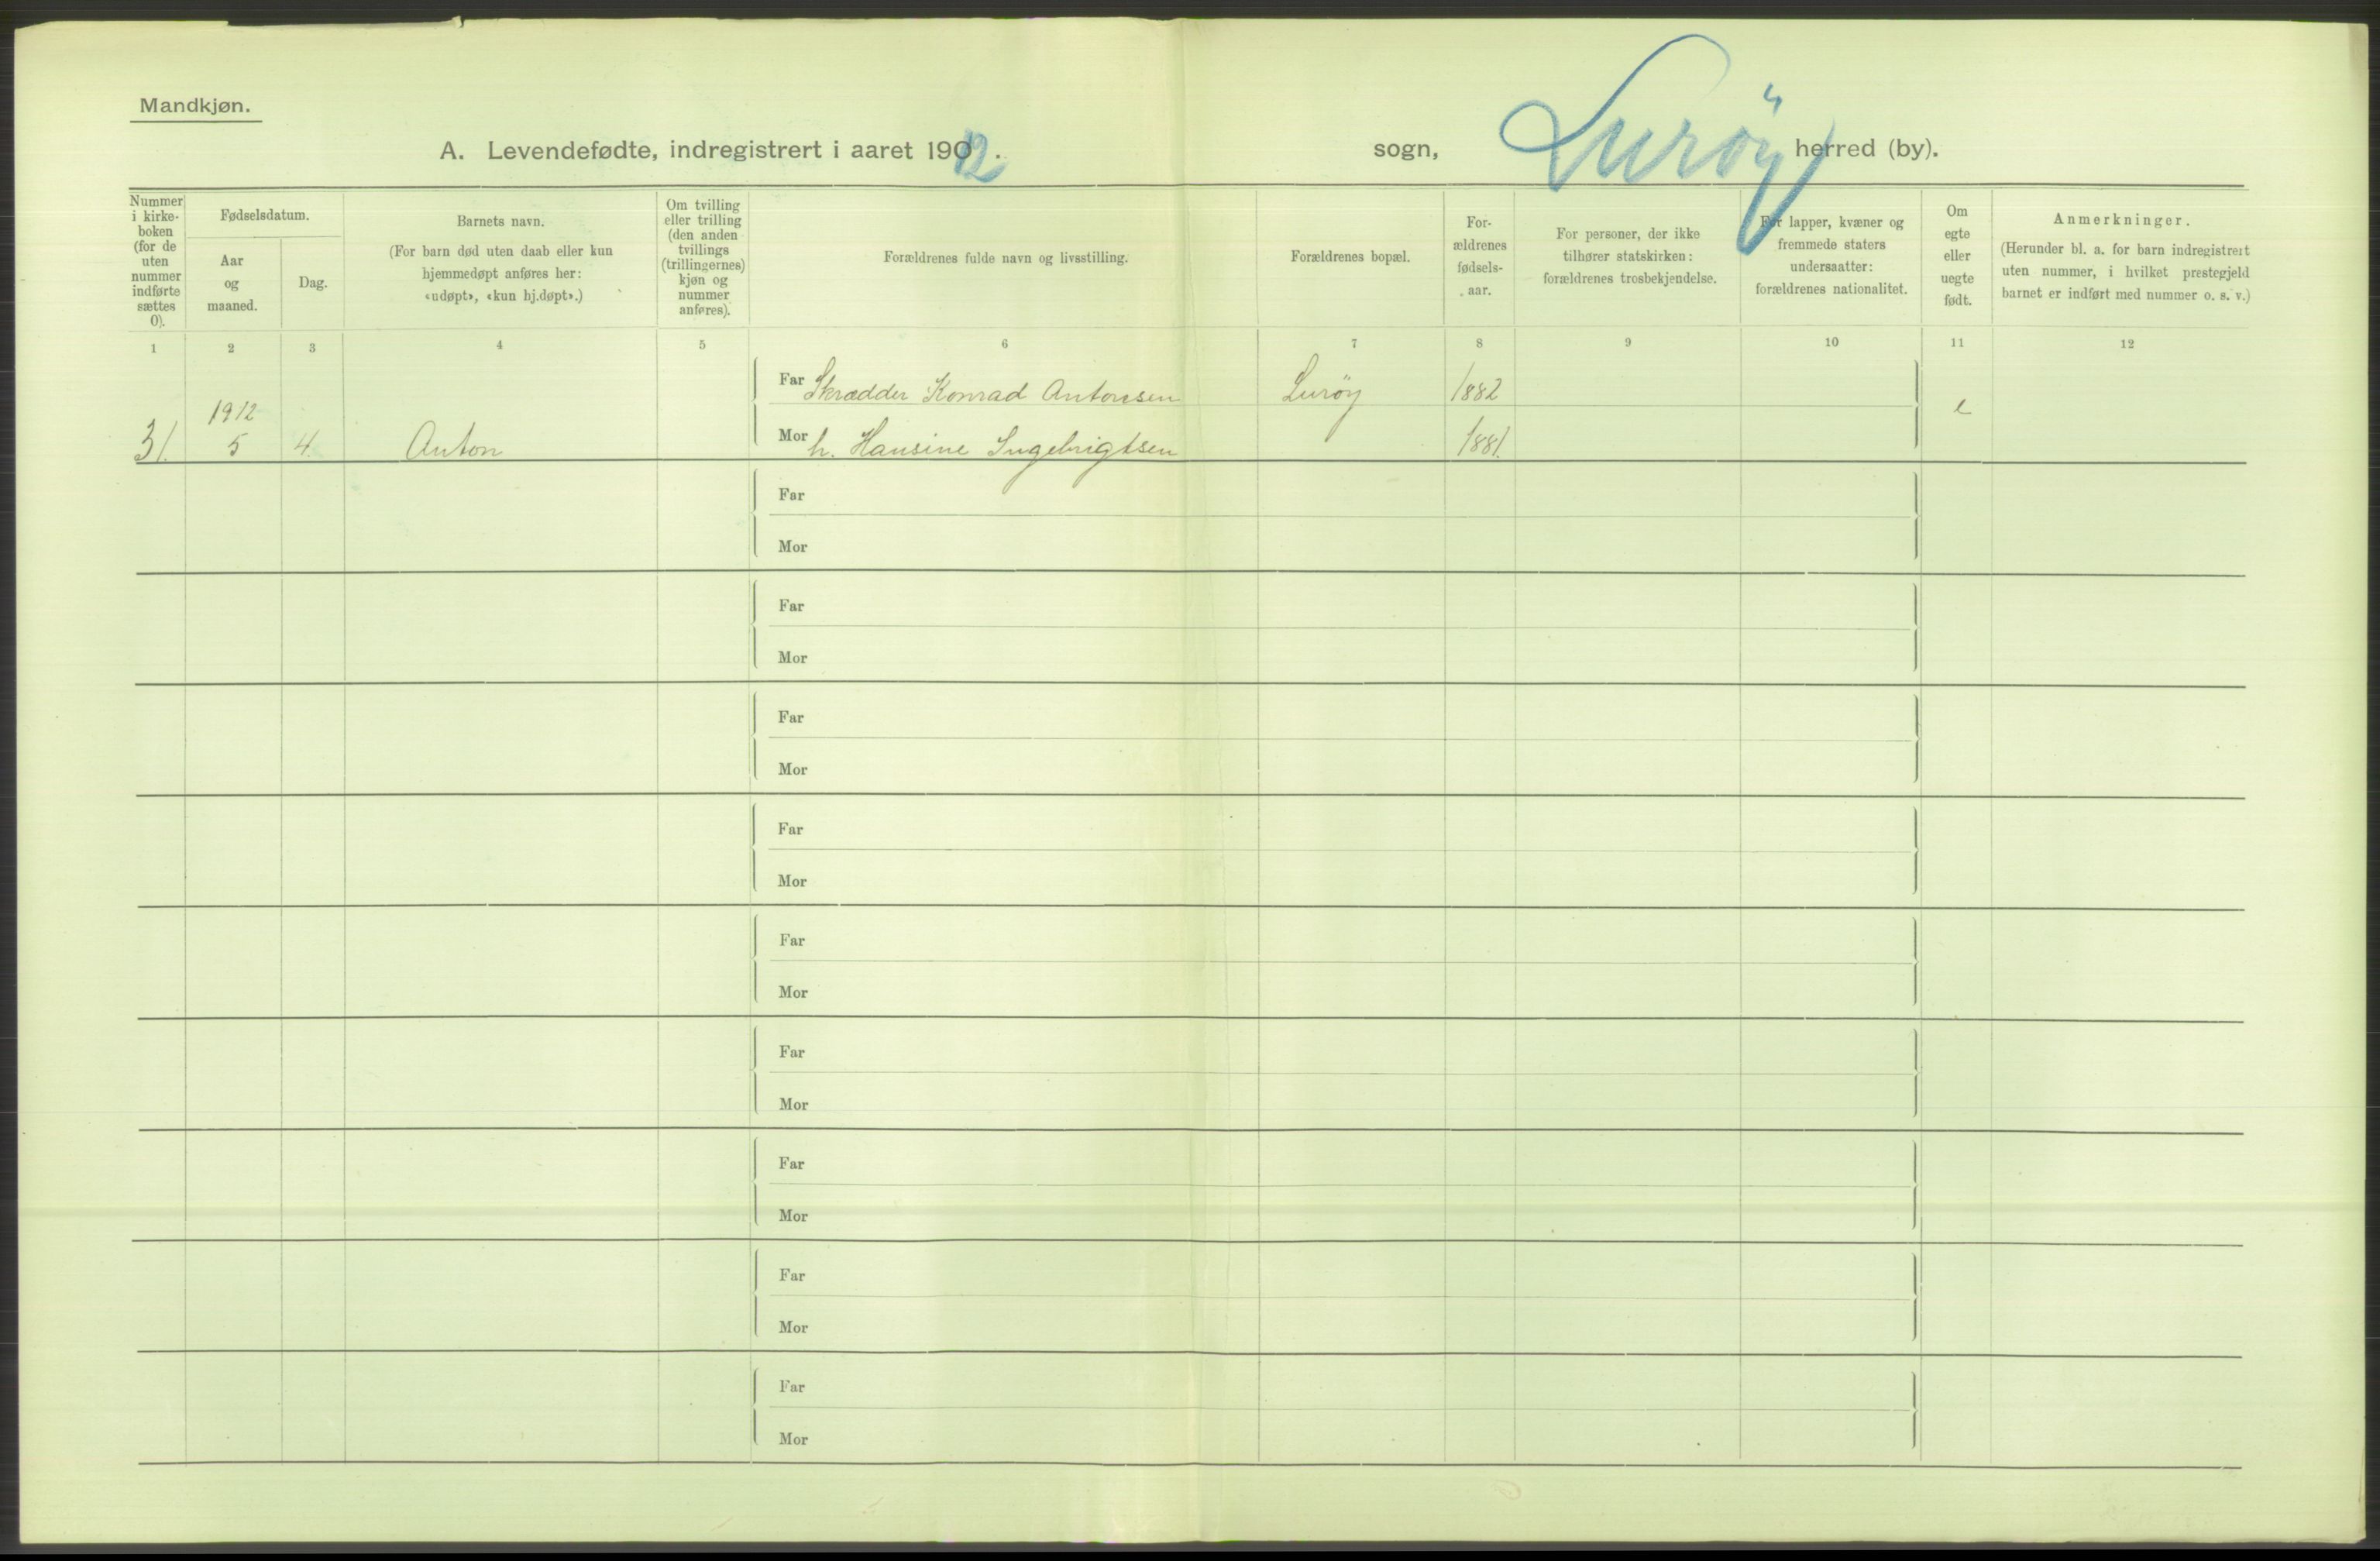 Mandkjøn.
A. Levendefødte, indregistrert i aaret 1912. sogn, Luröy herred (by).
Nummer i kirkeboken (for de uten nummer indførte sættes 0).
Fødselsdatum.
Aar og maaned.
Dag.
Barnets navn.
(For barn død uten daab eller kun hjemmedøpt anføres her: «udøpt», «kun hj.døpt».)
Om tvilling eller trilling (den anden tvillings (trillingernes) kjøn og nummer anføres).
Forældrenes fulde navn og livsstilling.
Forældrenes bopæl.
Forældrenes fødselsaar.
For personer, der ikke tilhører statskirken: forældrenes trosbekjendelse.
For lapper, kvæner og fremmede staters undersaatter: forældrenes nationalitet.
Om egte eller uegte født.
Anmerkninger.
(Herunder bl. a. for barn indregistrert uten nummer, i hvilket prestegjeld barnet er indført med nummer o. s. v.)
1 2 3 4 5 6 7 8 9 10 11 12
Far Skrædder Konrad Antonsen Luröy 1882
1912 e
31. 5 4. Anton Mor h. Hansine Ingebrigtsen 1881.
Far
Mor
Far
Mor
Far
Mor
Far
Mor
Far
Mor
Far
Mor
Far
Mor
Far
Mor
Far
Mor